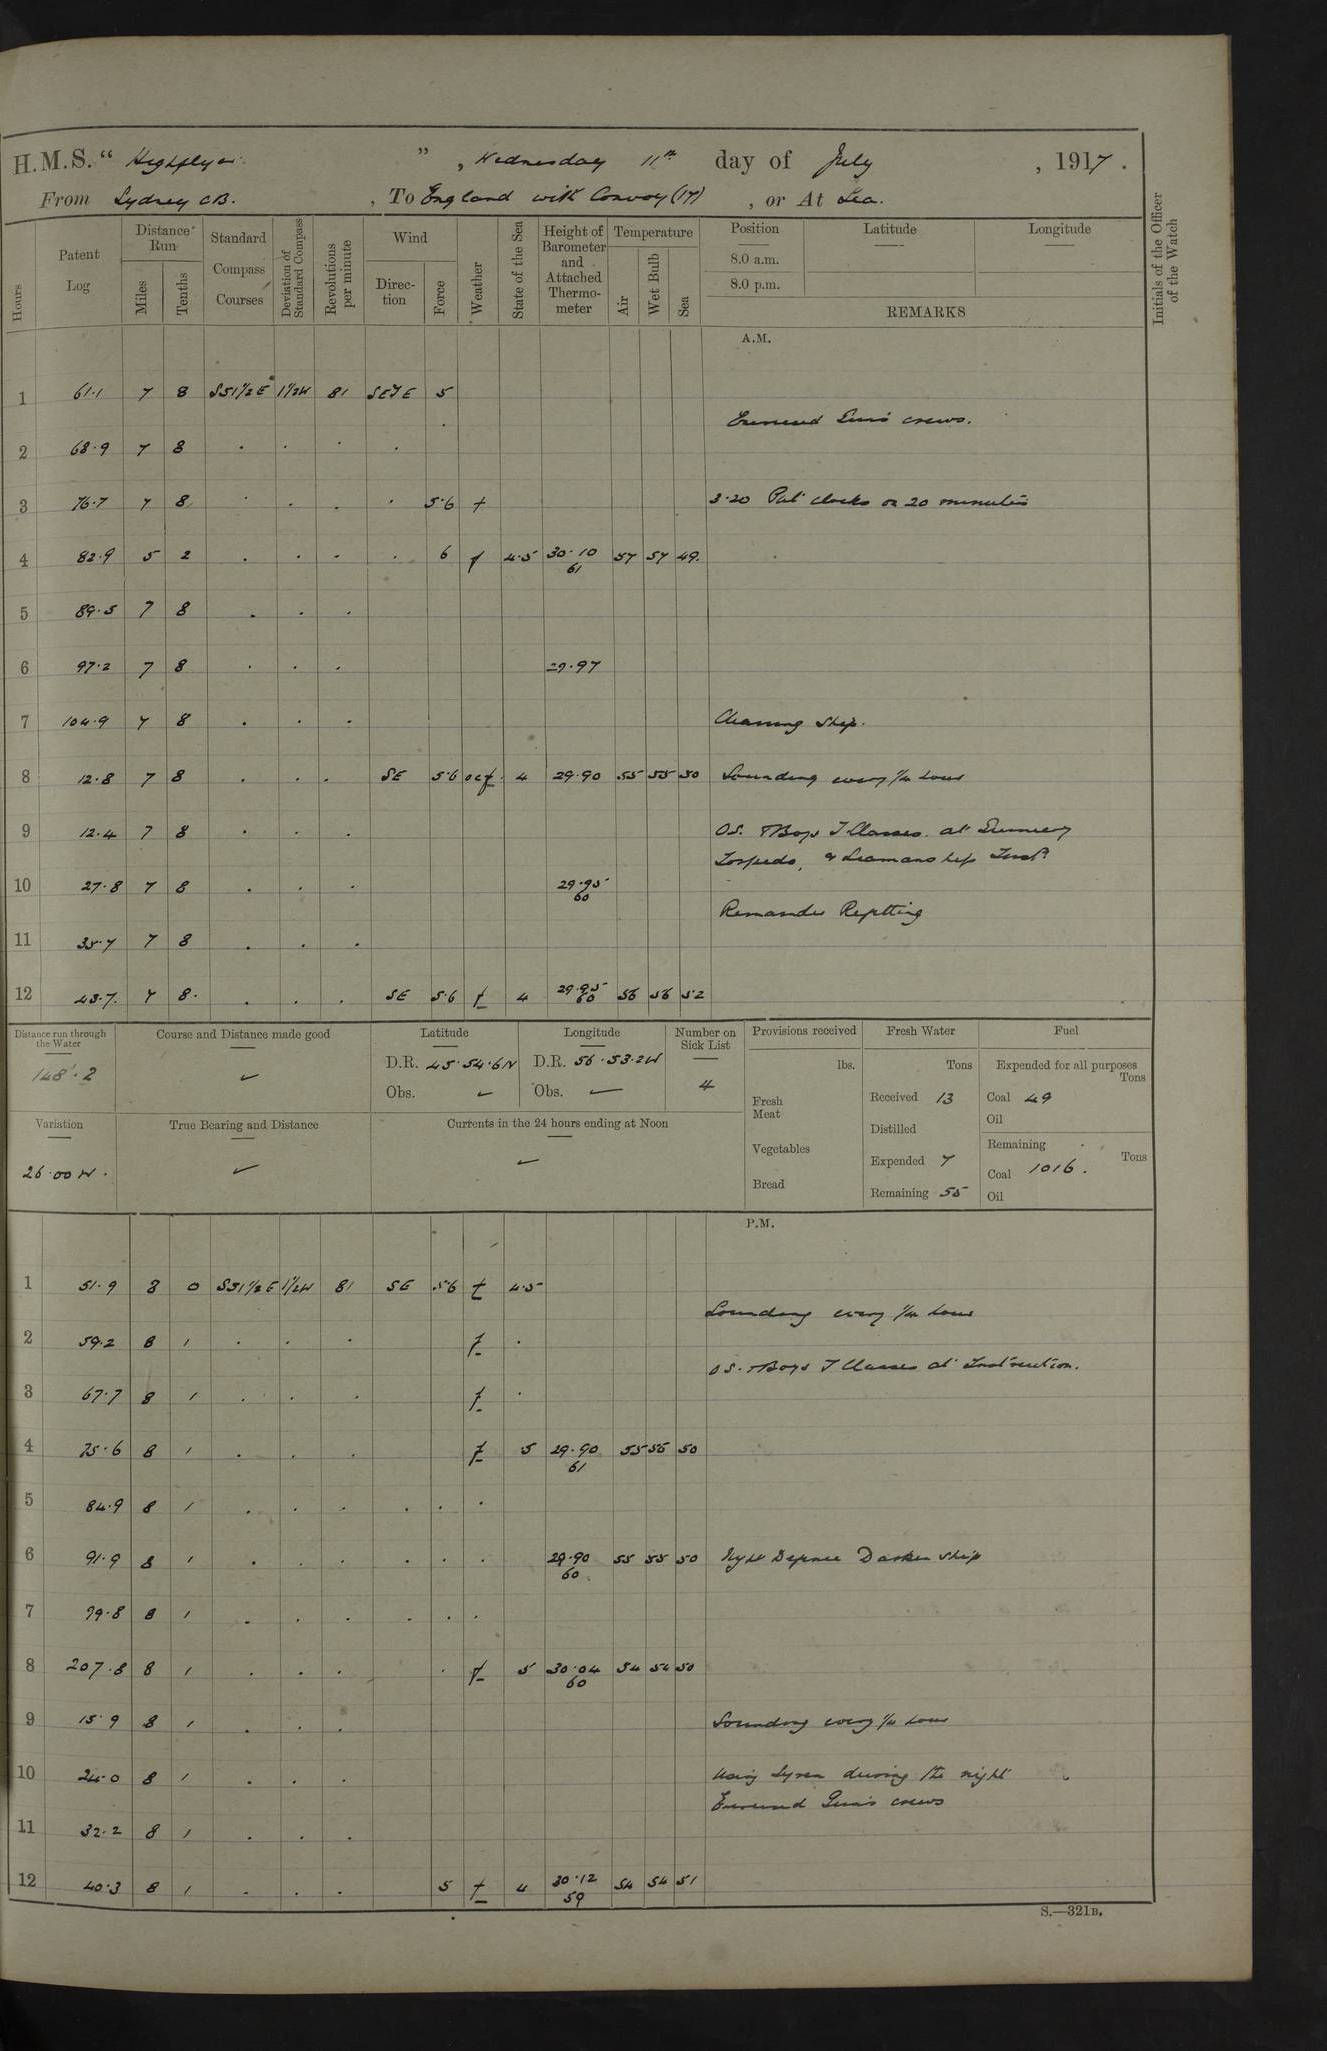 H.M.S. “ Highflyer ” , Wednesday 11th day of July , 1917 .
From Sydney CB. , To England with Convoy (17) , or At Sea.
Hours
Patent Log
Distance Run
Miles
Tenths
Standard Compass Courses
Deviation of Standard Compass
Revolutions per minute
Wind
Direction
Force
Weather
State of the Sea
Height of Barometer and Attached Thermometer
Temperature
Air
Wet Bulb
Sea
Position
8.0 a.m.
8.0 p.m.
Latitude
Longitude
REMARKS
Initials of the Officer of the Watch
A.M.
1 61.1 7 8 S51½E 1½W 81 SE 5
Exercised Guns crews.
2 68.9 7 8 . . . .
3 76.7 7 8 . . . . 5.6 f 3.20 Put clocks on 20 minutes
4 82.9 5 2 . . . . 6 f 4.5 30.10 57 57 49.
61
5 89.5 7 8 . . .
6 97.2 7 8 . . . 29.97
7 104.9 7 8 . . . Cleaning Ship.
8 12.8 7 8 . . . SE 5.6 ocf 4 29.90 55 55 50 Sounding every ¼ hour
9 12.4 7 8 . . . O.S. & Boys T Classes at Gunnery
Torpedo, & Seamanship Inst.
10 27.8 7 8 . . . 29.95
60
Remainder Refitting
11 35.7 7 8 . . .
12 43.7. 7 8. . . . SE 5.6 f 4 29.95 56 56 52
60
Distance run through the Water
148.2
Course and Distance made good
Latitude
D.R. 45.54.6N
Obs.
Longitude
D.R. 56.53.2W
Obs.
Number on Sick List
4
Provisions received
lbs.
Fresh Meat
Vegetables
Bread
Fresh Water
Tons
Received 13
Distilled
Expended 7
Remaining 55
Fuel
Expended for all purposes
Tons
Coal 49
Oil
Remaining
Tons
Coal 1016.
Oil
Variation
26.00W.
True Bearing and Distance
Currents in the 24 hours ending at Noon
P.M.
1 51.9 8 0 S51½E 1½W 81 SE 5.6 f 4.5
Sounding every ¼ hour
2 59.2 8 1 . . . f .
O.S. & Boys T Classes at Instruction.
3 67.7 8 1 . . . f .
4 75.6 8 1 . . . f 5 29.90 55 55 50
61
5 84.9 8 1 . . . . . .
6 91.9 8 1 . . . . . . 29.90 55 55 50 Night Defence Darken Ship
60
7 99.8 8 1 . . . . . .
8 207.8 8 1 . . . . f 5 30.04 54 54 50
60
9 15.9 8 1 . . . Sounding every ¼ hour
10 24.0 8 1 . . . Using Syren during the night
Exercised Guns crews
11 32.2 8 1 . . .
12 40.3 8 1 . . . 5 f 4 30.12 54 54 51
59
S.—321B.